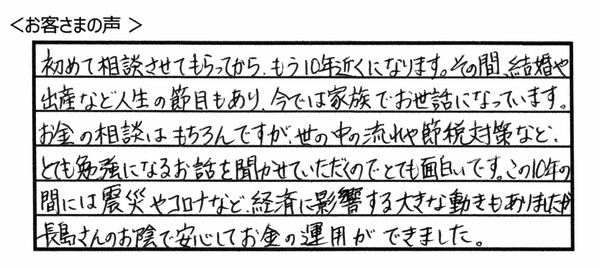 ＜お客さまの声＞
初めて相談させてもらってから、もう10年近くになります。その間、結婚や
出産など人生の節目もあり、今では家族でお世話になっています。
お金の相談はもちろんですが、世の中の流れや節税対策など、
とても勉強になるお話を聞かせていただくのでとても面白いです。この10年の
間には震災やコロナなど、経済に影響する大きな動きもありましたが
長島さんのお陰で安心してお金の運用ができました。